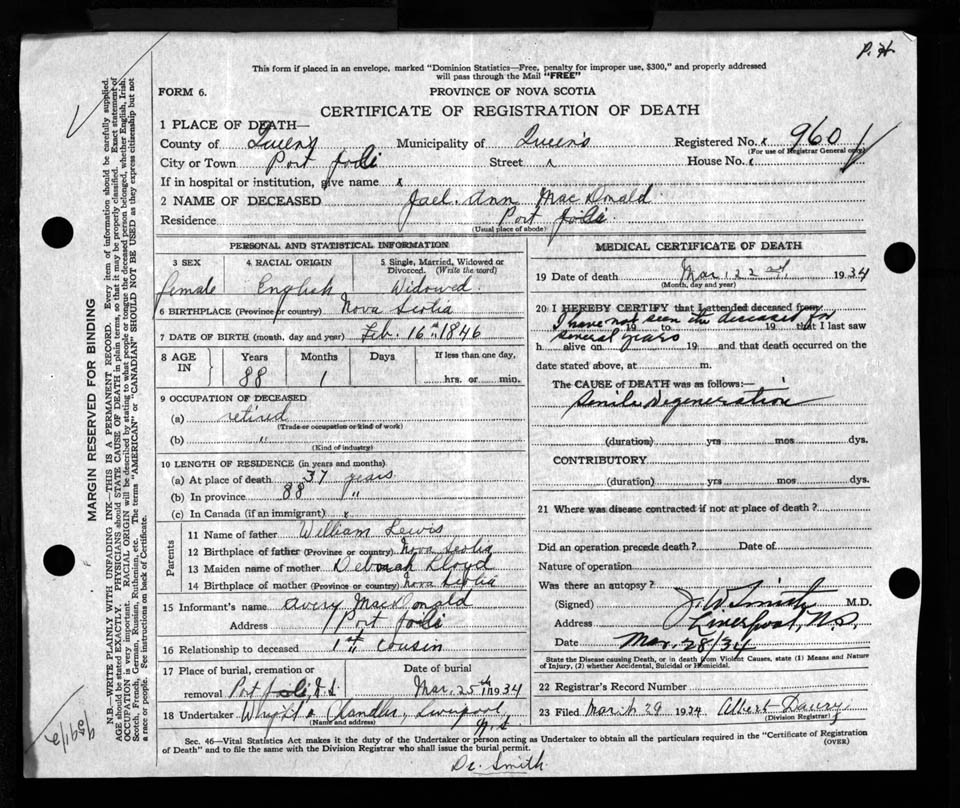 P. H
This form if placed in an envelope, marked "Dominion Statistics—Free, penalty for improper use, $300," and properly addressed
will pass through the Mail "FREE"
FORM 6.
PROVINCE OF NOVA SCOTIA
CERTIFICATE OF REGISTRATION OF DEATH
1 PLACE OF DEATH—
County of Queens Municipality of Queen's Registered No. x 960
(For use of Registrar General only)
City or Town Port Joli Street x House No. x
If in hospital or institution, give name x
2 NAME OF DECEASED Jael. Ann MacDonald
Residence Port Joli
(Usual place of abode)
PERSONAL AND STATISTICAL INFORMATION
3 SEX 4 RACIAL ORIGIN 5 Single, Married, Widowed or Divorced. (Write the word)
female English Widowed
6 BIRTHPLACE (Province or country) Nova Scotia
7 DATE OF BIRTH (month, day and year) Feb. 16th 1846
8 AGE IN Years Months Days If less than one day,
88 1 hrs. or min.
9 OCCUPATION OF DECEASED
(a) retired
(Trade or occupation or kind of work)
(b) "
(Kind of industry)
10 LENGTH OF RESIDENCE (in years and months)
(a) At place of death 37 years
(b) In province 88 "
(c) In Canada (if an immigrant) x
Parents
11 Name of father William Lewis
12 Birthplace of father (Province or country) Nova Scotia
13 Maiden name of mother Deborah Lloyd
14 Birthplace of mother (Province or country) Nova Scotia
15 Informant's name Avery MacDonald
Address Port Joli
16 Relationship to deceased 1st cousin
17 Place of burial, cremation or Date of burial
removal Port Joli, N.S. Mar. 25th 1934
18 Undertaker Wright & Chandler, Liverpool, N.S
(Name and address)
MEDICAL CERTIFICATE OF DEATH
19 Date of death Mar. 22nd 1934
(Month, day and year)
20 I HEREBY CERTIFY that I attended deceased from
I have not seen the deceased for
19 to 19 that I last saw
several years
h alive on 19 and that death occurred on the
date stated above, at m.
The CAUSE of DEATH was as follows:—
Senile Degeneration
(duration) yrs mos dys.
CONTRIBUTORY
(duration) yrs mos dys.
21 Where was disease contracted if not at place of death?
Did an operation precede death? Date of
Nature of operation
Was there an autopsy?
(Signed) J. W. Smith M.D.
Address Liverpool, N.S.
Date Mar. 28/34
State the Disease causing Death, or in death from Violent Causes, state (1) Means and Nature
of Injury, (2) whether Accidental, Suicidal or Homicidal.
22 Registrar's Record Number
23 Filed March 29 1934 Albert
(Division Registrar)
Sec. 46—Vital Statistics Act makes it the duty of the Undertaker or person acting as Undertaker to obtain all the particulars required in the "Certificate of Registration
of Death" and to file the same with the Division Registrar who shall issue the burial permit.
(OVER)
Dr. Smith
MARGIN RESERVED FOR BINDING
N.B.—WRITE PLAINLY WITH UNFADING INK—THIS IS A PERMANENT RECORD. Every item of information should be carefully supplied.
AGE should be stated EXACTLY. PHYSICIANS should STATE CAUSE OF DEATH in plain terms, so that it may be properly classified. Exact statement of
OCCUPATION is very important. RACIAL ORIGIN will be described by stating to what people or tongue the deceased person belonged, whether English, Irish,
Scotch, French, German, Russian, Ruthenian, etc. The terms "AMERICAN" or "CANADIAN" SHOULD NOT BE USED as they express citizenship but not
a race or people. See instructions on back of Certificate.